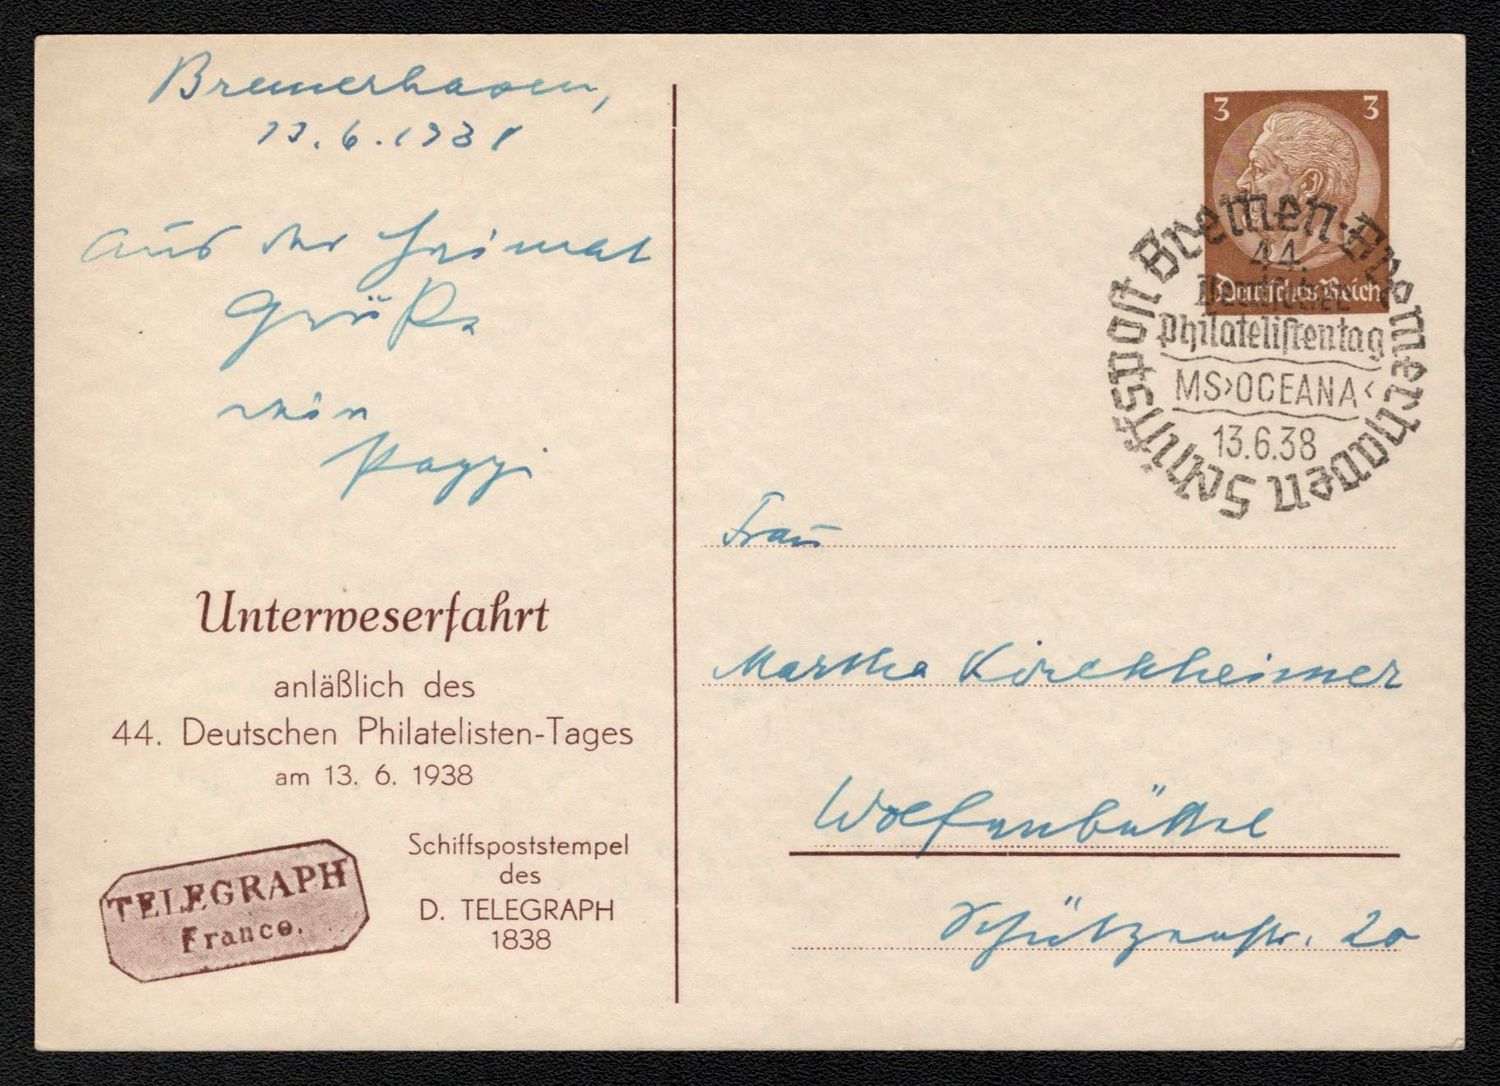 Bremerhaven,
13.6.1938
Aus der Heimat
Grüße
Unterweserfahrt
anläßlich des
44. Deutschen Philatelisten-Tages
am 13. 6. 1938
TELEGRAPH
Franco.
Schiffspoststempel
des
D. TELEGRAPH
1838
3 3
Deutsches Reich
Schiffspost Bremen-Bremerhaven
44.
Deutscher
Philatelistentag
MS›OCEANA‹
13.6.38
Frau
Martha Kirchheimer
Wolfenbüttel
Schützenstr. 20